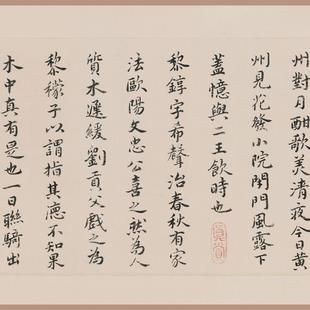 州對月酣歌美清夜今日黃
州見花發小院閉門風露下
蓋憶與二王飲時也
黎錞字希聲治春秋有家
法歐陽文忠公喜之然為人
質木遲緩劉貢父戲之為
黎檬子以謂指其德不知果
木中真有是也一日聯騎出